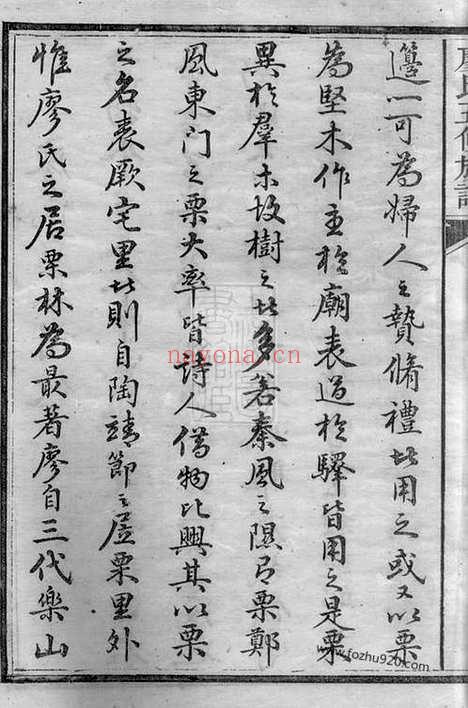 廖氏五修族譜
籩一可為婦人之贄脩禮比用之或又以栗
為堅木作主於廟表道於驛皆用之是栗
異於羣木故樹之比多若秦風之隰有栗鄭
風東门之栗大率皆詩人借物比興其以栗
之名表厥宅里比則自陶靖節之居栗里外
惟廖氏之居栗林為最著廖自三代樂山
nayona.cn
www.fozhu920.com